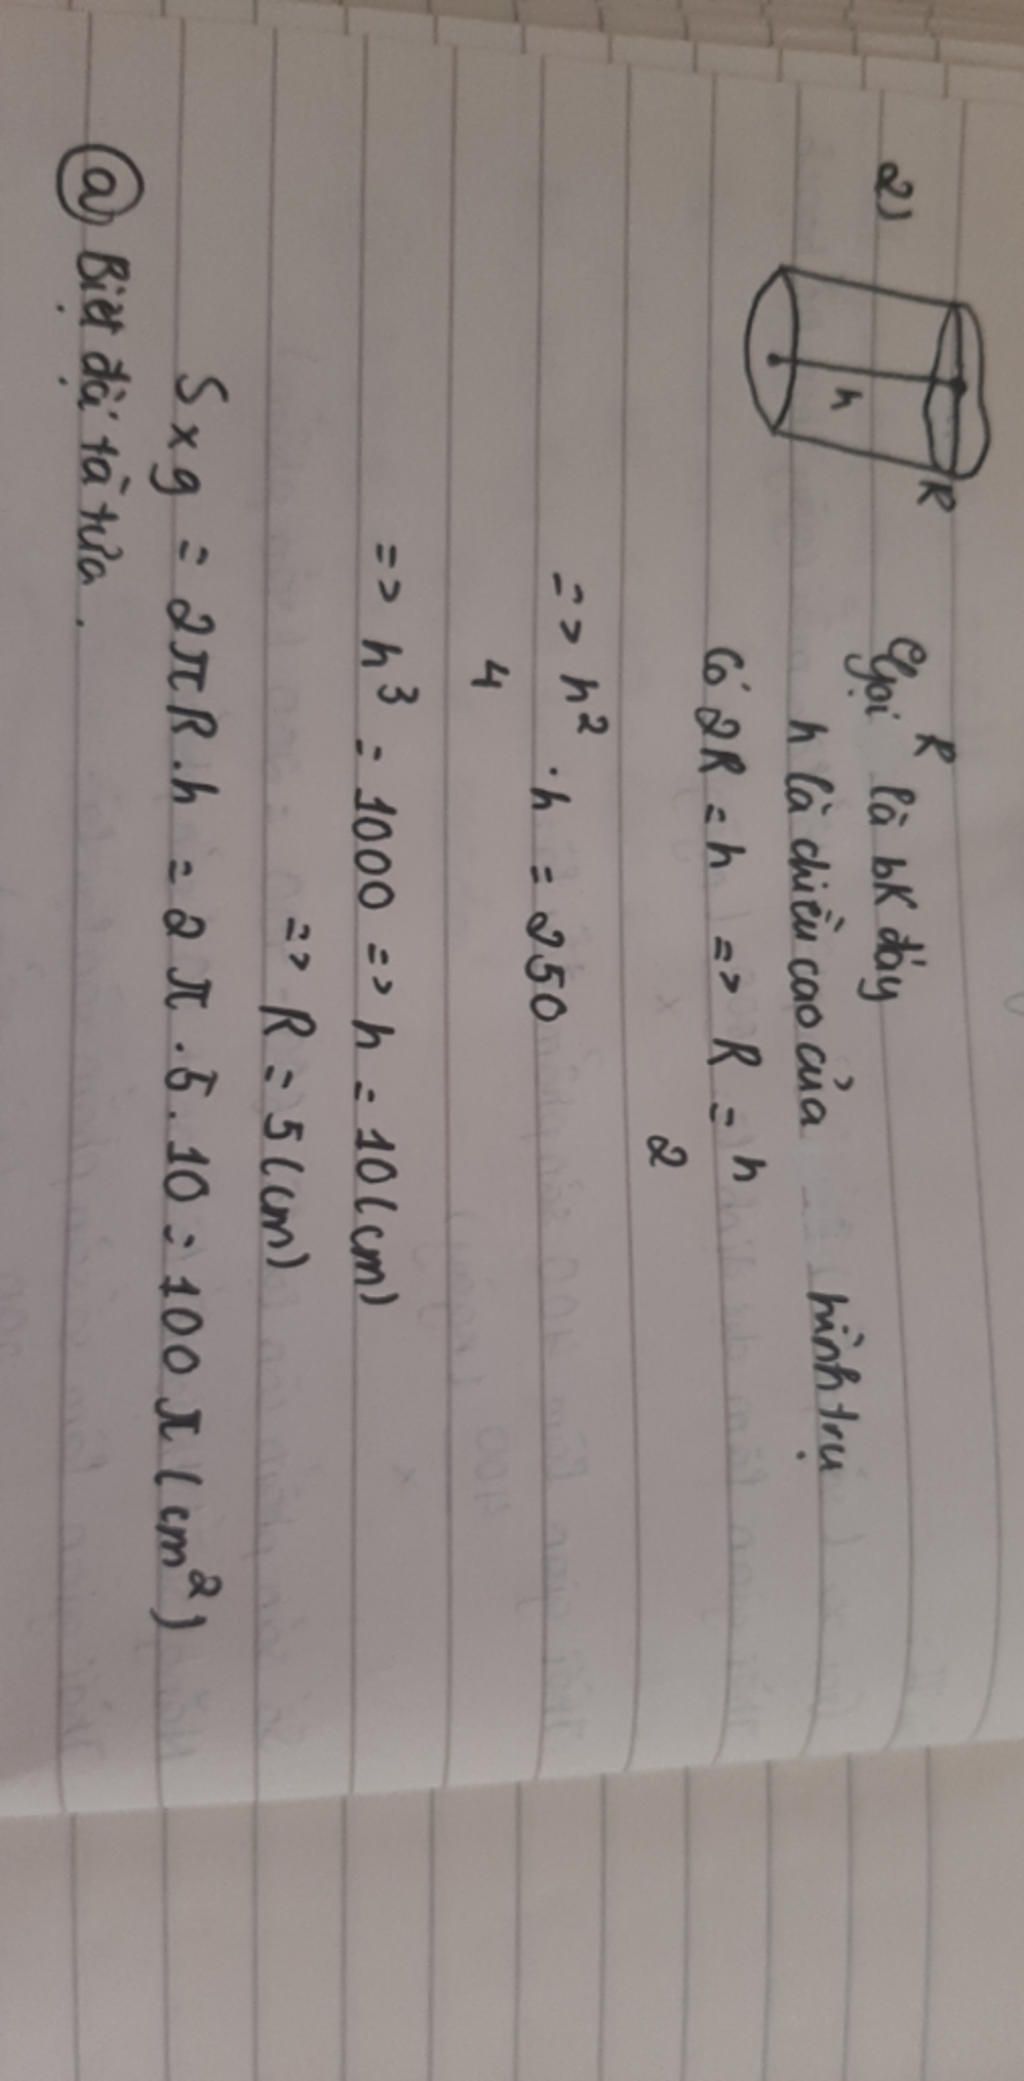 2)
h
R
Gọi R là bk đáy
h là chiều cao của hình trụ
Có 2R = h => R = h
2
=> h² . h = 250
4
=> h³ = 1000 => h = 10 (cm)
=> R = 5 (cm)
Sxg = 2πR.h = 2π.5.10 = 100π (cm²)
ⓐ Biệt đãi tà tửa.